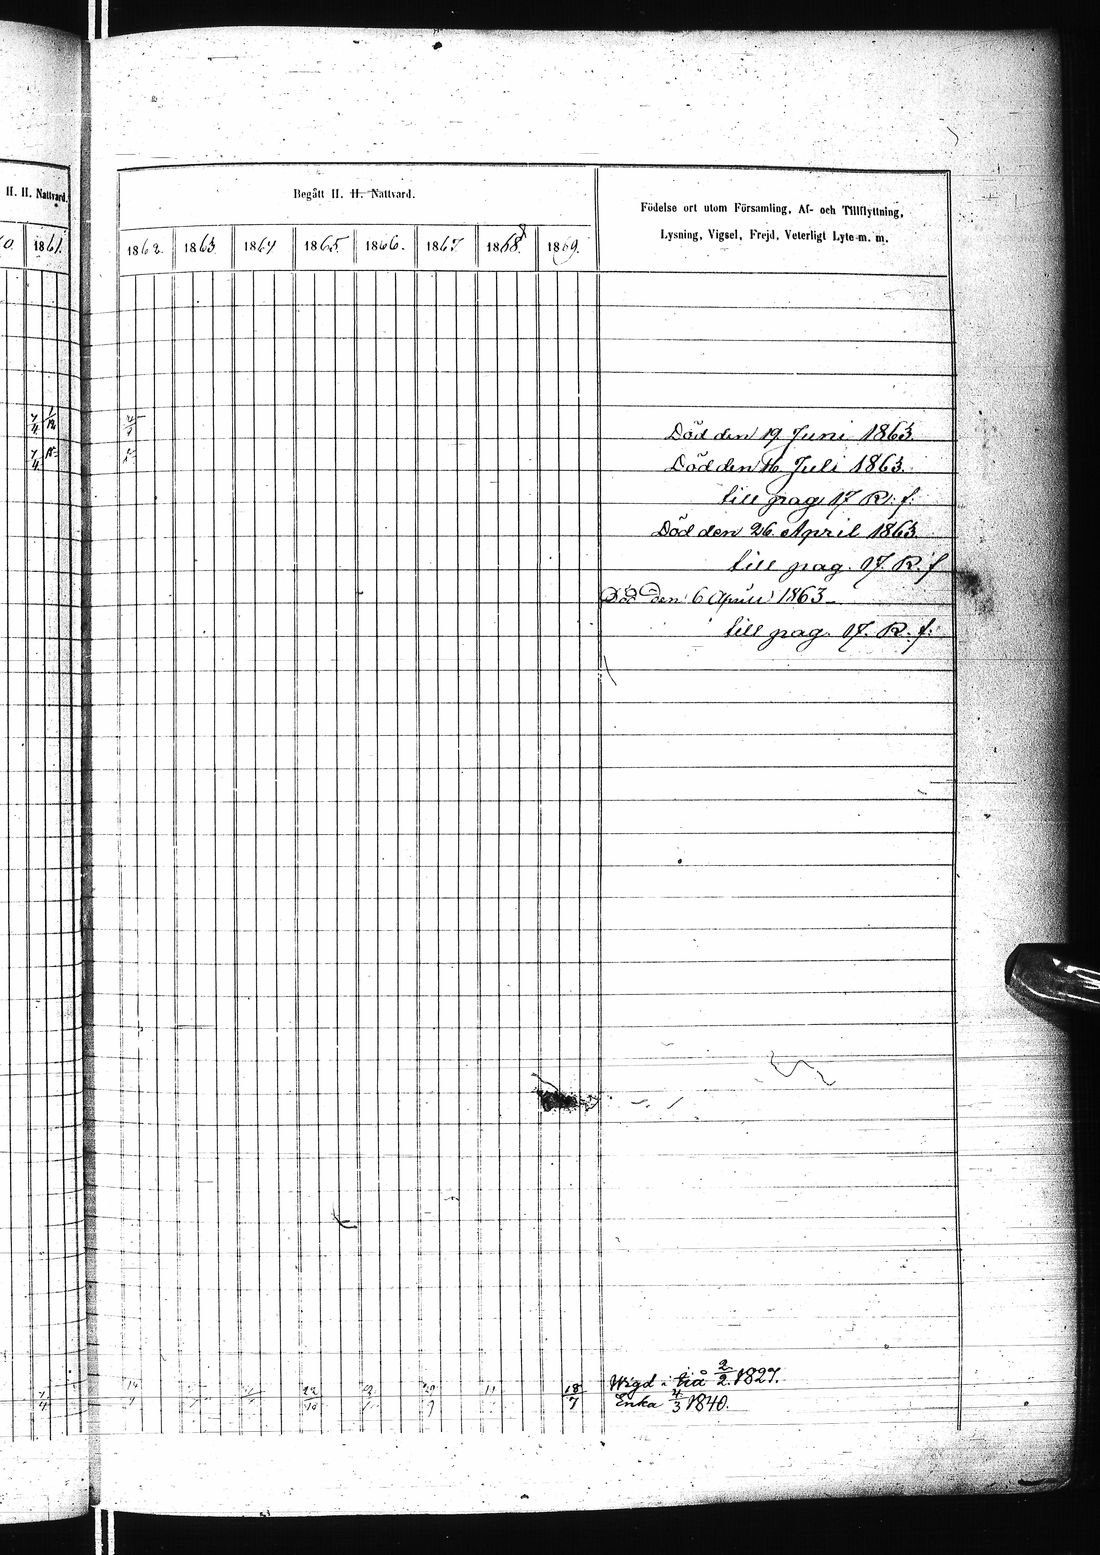 H. H. Nattvard.
1861.
7/4 1/12
7/4
7/4
Begått H. H. Nattvard.
Födelse ort utom Församling, Af- och Tillflyttning,
Lysning, Vigsel, Frejd, Veterligt Lyte m. m.
1862. 1863 1864 1865 1866. 1867 1868 1869.
Död den 19 Juni 1863.
Död den 16 Juli 1863.
till pag 17 R. f.
Död den 26 April 1863
till pag. 17. R. f
Död den 6 April 1863
till pag. 17. R. f.
Wigd 2/2 1827.
Enka 4/3 1840.
22/10
18/7